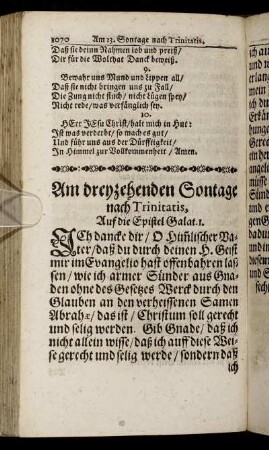 1070 Am 13. Sontage nach Trinitatis.
Daß sie deinn Nahmen lob und preiß/
Dir für die Wolthat Danck beweiß.
9.
Bewahr uns Mund und Lippen all/
Daß sie nicht bringen uns zu Fall/
Die Zung nicht fluch/ nicht lügen spey/
Nicht rede/ was verfänglich sey.
10.
HErr JEsu Christ/ halt mich in Hut:
Ist was verderbt/ so mach es gut/
Und führ uns aus der Dürfftigkeit/
In Himmel zur Vollkommenheit/ Amen.
Am dreyzehenden Sontage
nach Trinitatis,
Auf die Epistel Galat. 1.
ICh dancke dir/ O Him̃lischer Va-
ter/ daß du durch deinen H. Geist
mir im Evangelio hast offenbahren las-
sen/ wie ich armer Sünder aus Gna-
den ohne des Gesetzes Werck durch den
Glauben an den verheissenen Samen
Abrahæ/ das ist/ Christum soll gerecht
und selig werden. Gib Gnade/ daß ich
nicht allein wisse/ daß ich auff diese Wei-
se gerecht und selig werde/ sondern daß
ich